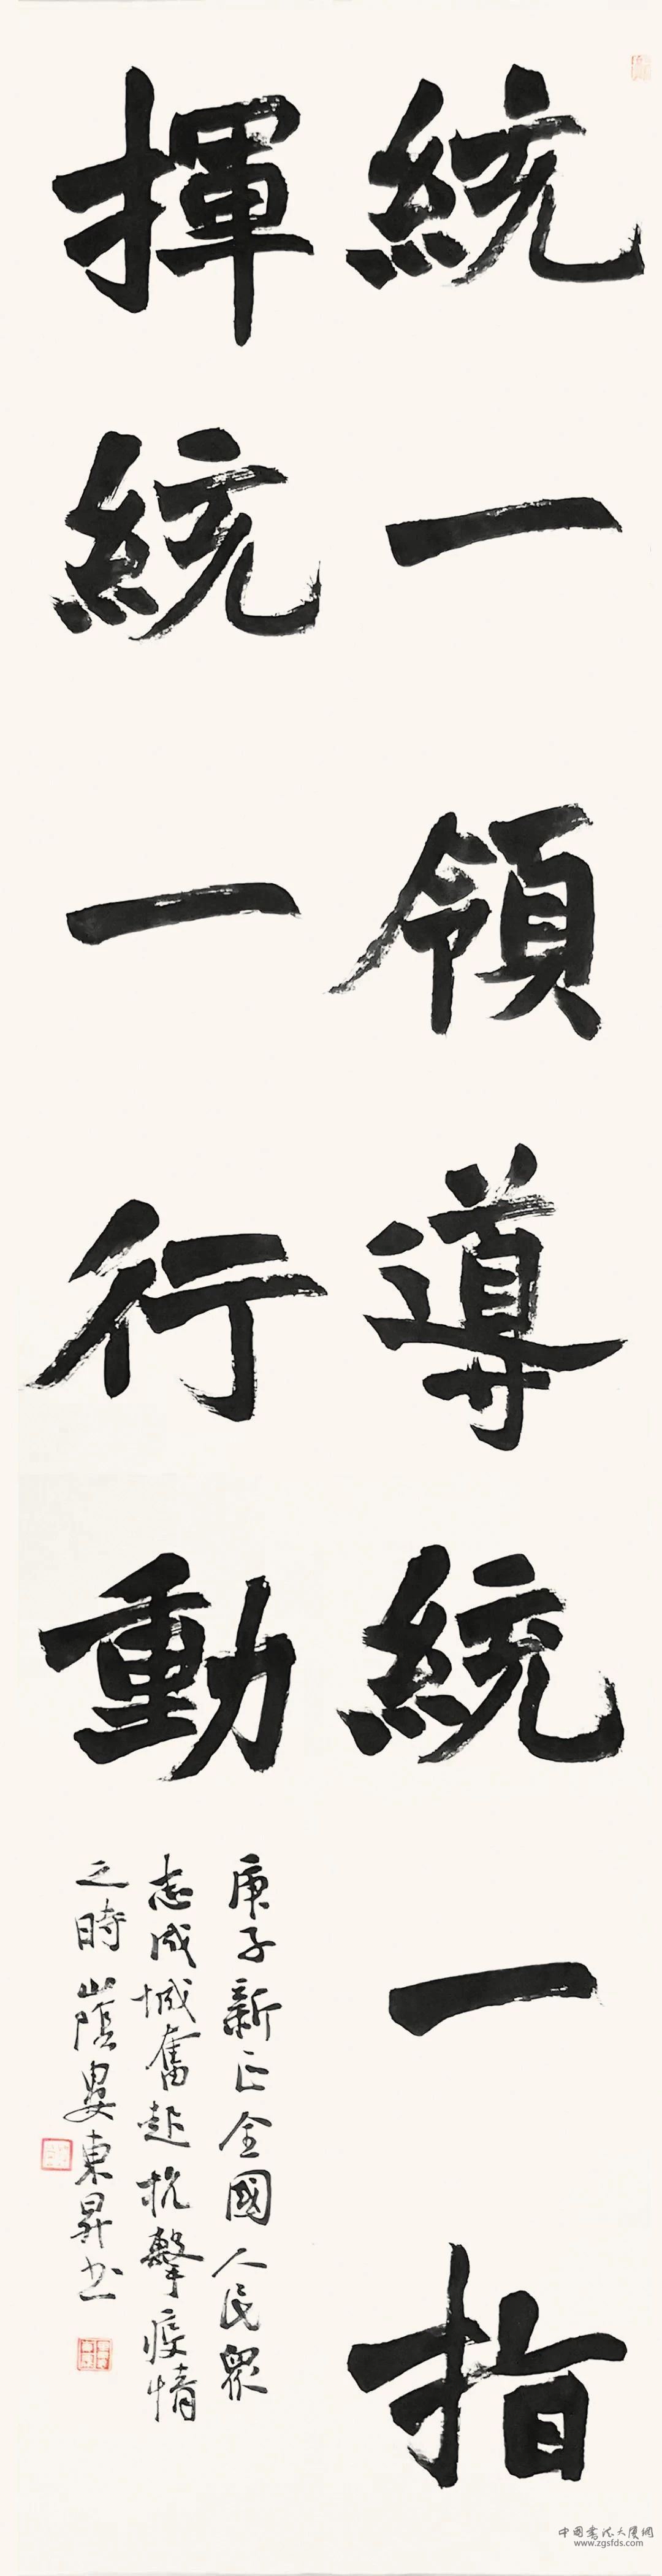 統一領導統一指
揮統一行動
庚子新正全國人民眾
志成城奮起抗擊疫情
之時山陰婁東昇书
中国书法大厦网
www.zgsfds.com